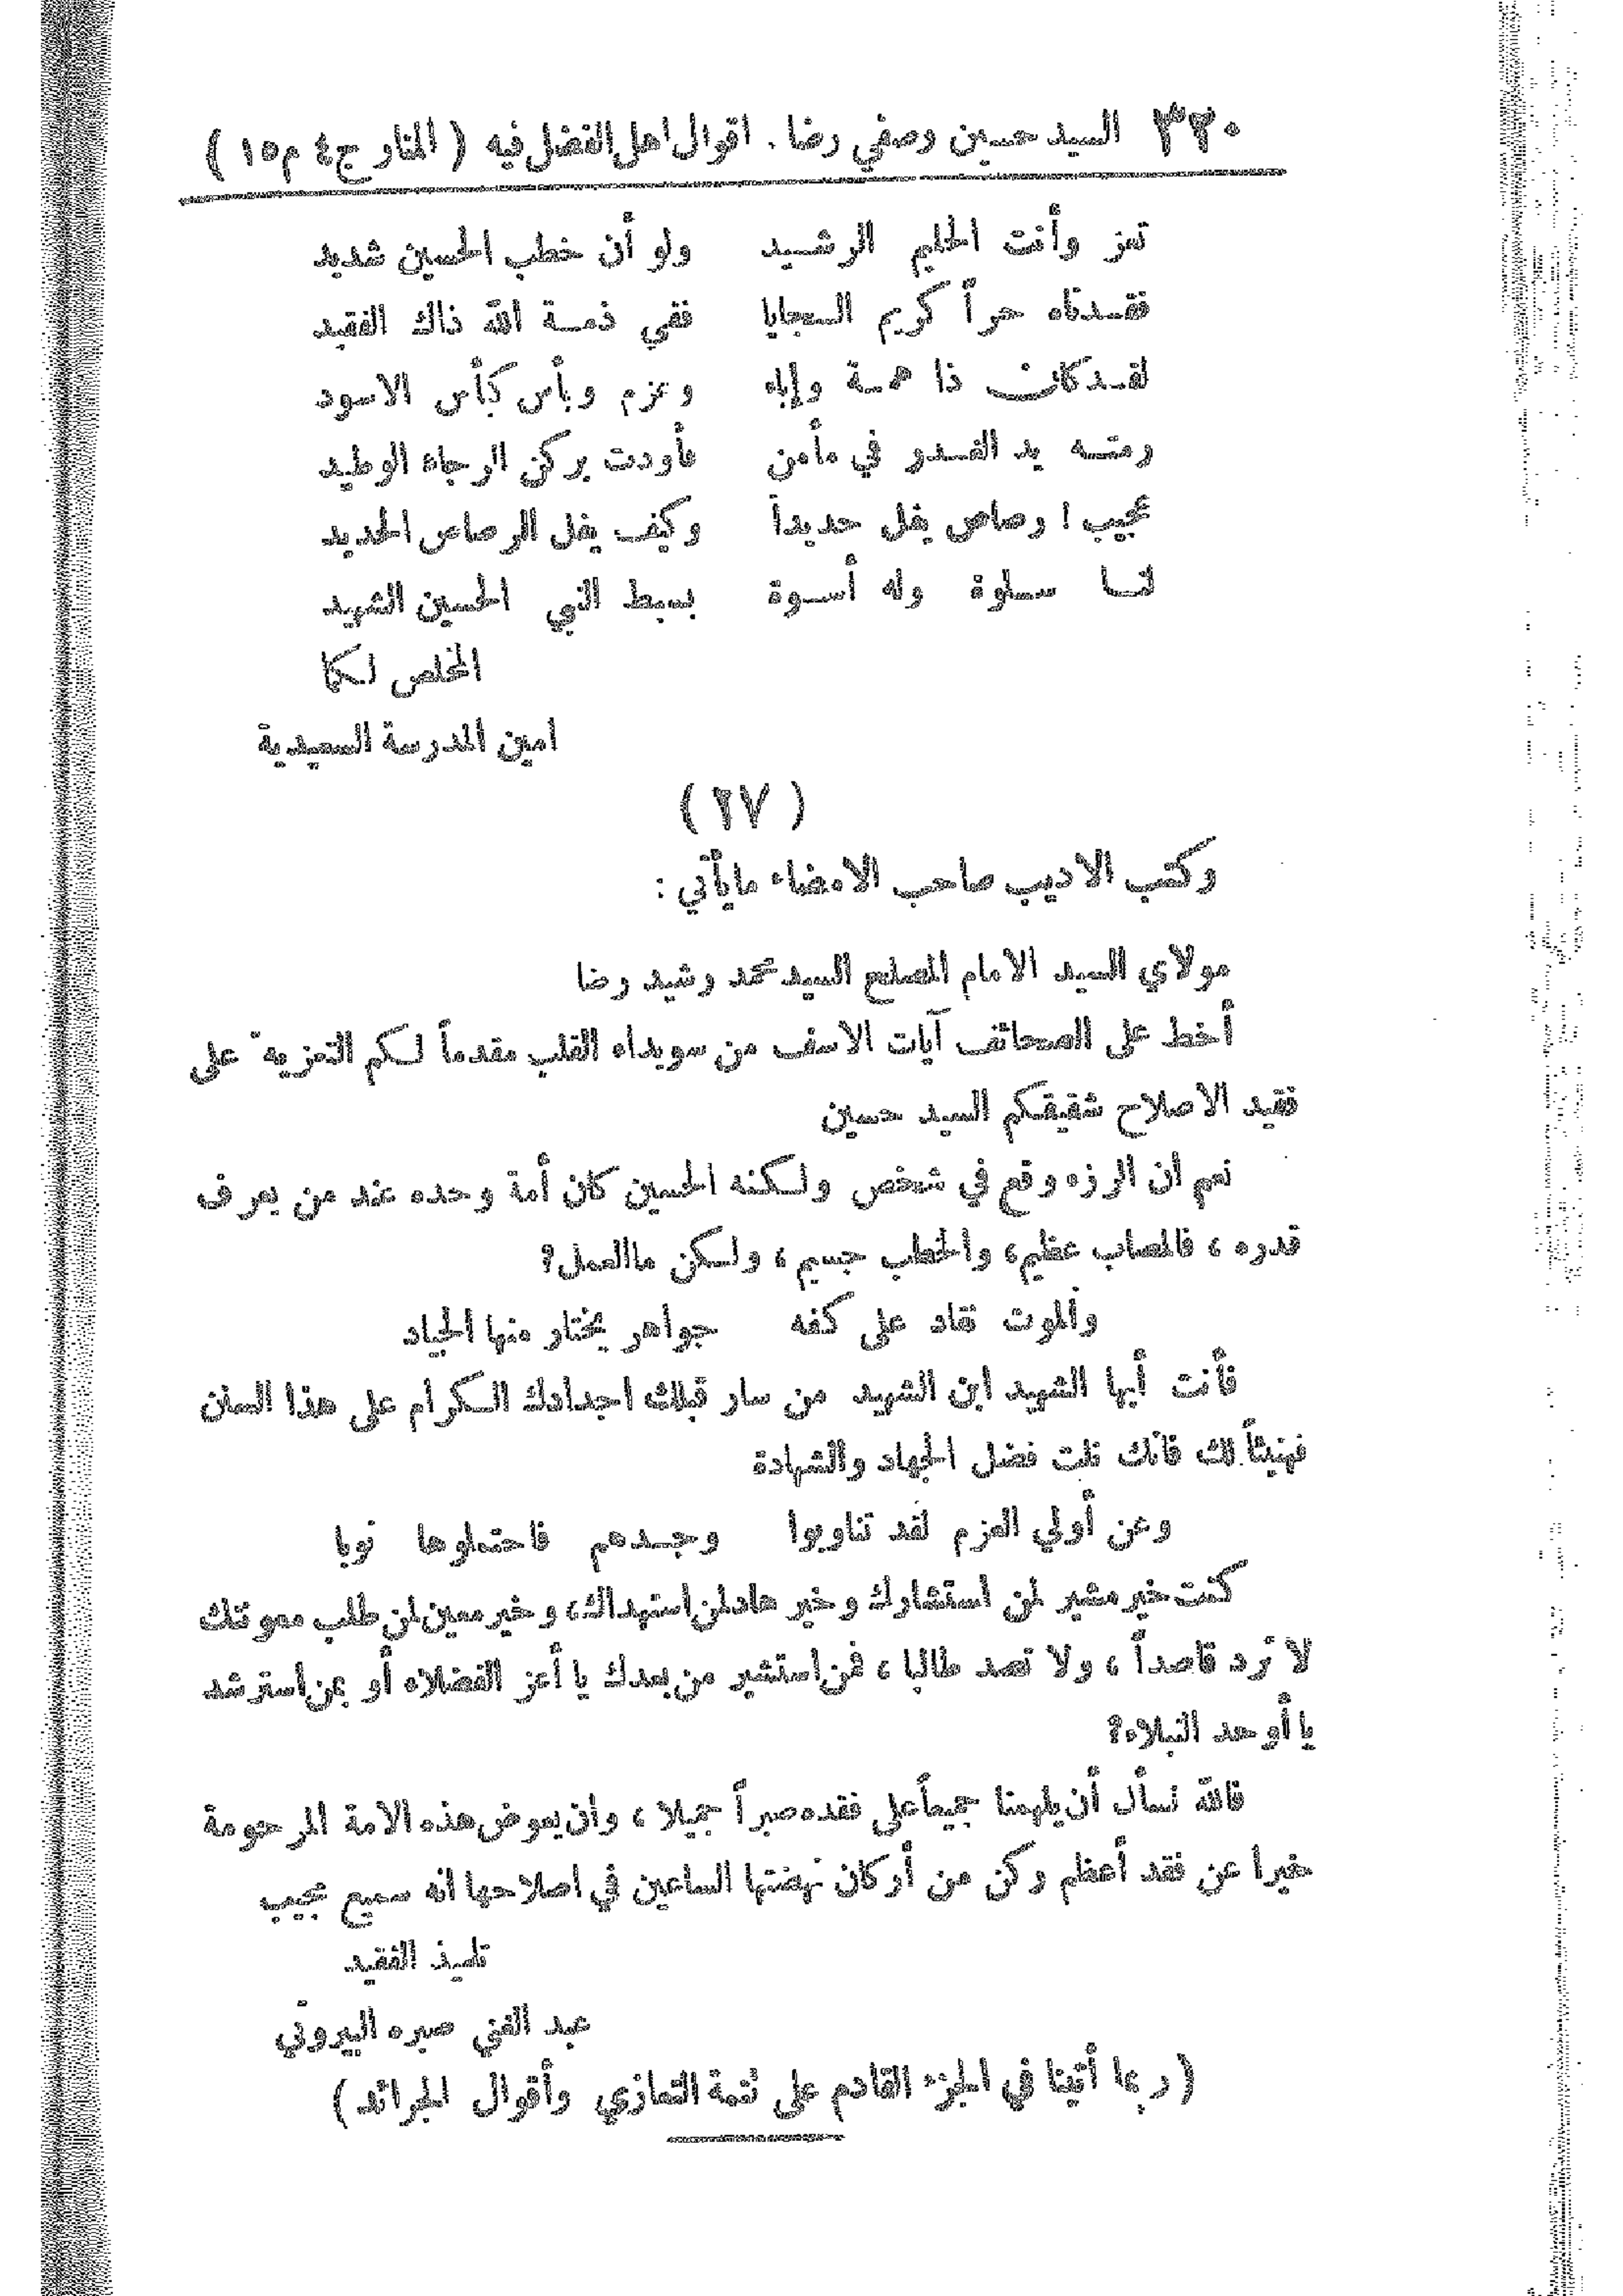 ٣٢٠ السيد حسين وصفي رضا. اقوال اهل الفضل فيه ( المنار ج٤ م١٥ )
تعز وأنت الحليم الرشيد ولو أن خطب الحسين شديد
فقدناه حراً كريم السجايا ففي ذمة الله ذاك الفقيد
لقد كان ذا همة وإباء وعزم وبأس كبأس الاسود
رمته يد الغدر في مأمن فأودت بركن الرجاء الوطيد
عجيب ! رصاص يفل حديداً وكيف يفل الرصاص الحديد
لنا سلوة وله أسوة بسبط النبي الحسين الشهيد
المخلص لكما
امين المدرسة السعيدية
( ٢٧ )
وكتب الاديب صاحب الامضاء مايأتي :
مولاي السيد الامام المصلح السيد محمد رشيد رضا
أخط على الصحائف آيات الاسف من سويداء القلب مقدماً لكم التعزية على
فقيد الاصلاح شقيقكم السيد حسين
نعم ان الرزء وقع في شخص ولكنه الحسين كان أمة وحده عند من يعرف
قدره ، فالمصاب عظيم، والخطب جسيم ، ولكن ماالعمل؟
والموت نقاد على كفه جواهر يختار منها الجياد
فأنت أيها الشهيد ابن الشهيد من سار قبلك اجدادك الكرام على هذا السنن
فهنيئاً لك فانك نلت فضل الجهاد والشهادة
وعن أولي العزم لقد تناوبوا وجدهم فاحتملوها نوبا
كنت خير مشير لمن استشارك وخير هاد لمن استهداك، وخير معين لمن طلب معونتك
لا ترد قاصداً ، ولا تصد طالبا ، فمن استشير من بعدك يا أعز الفضلاء أو بمن استرشد
يا أوحد النبلاء؟
فالله نسأل أن يلهمنا جميعاً على فقده صبراً جميلا ، وان يعوض هذه الامة المرحومة
خيرا عن فقد أعظم ركن من أركان نهضتها الساعين في اصلاحها انه سميع مجيب
تلميذ الفقيد
عبد الغني صبره البيروتي
(ربما أتينا في الجزء القادم على تتمة التعازي وأقوال الجرائد)